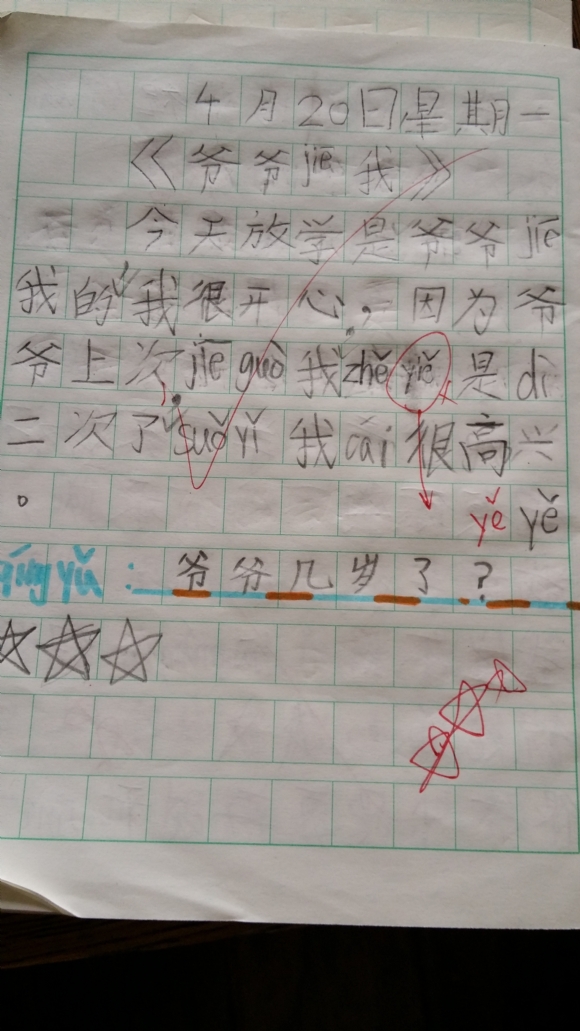 4月20日星期一
《爷爷jiē我》
今天放学是爷爷jiē
我的,我很开心,因为爷
爷上次jiē guò我zhě yiě是dì
二次了,suǒ yǐ我cái很高兴
。 yě yě
qíng yǔ:爷爷几岁了?